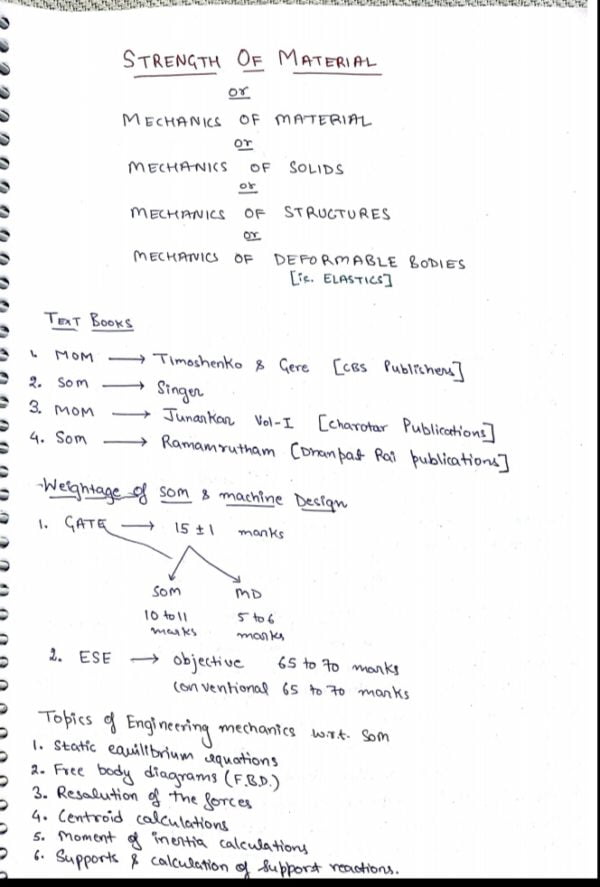 STRENGTH OF MATERIAL
or
MECHANICS OF MATERIAL
or
MECHANICS OF SOLIDS
or
MECHANICS OF STRUCTURES
or
MECHANICS OF DEFORMABLE BODIES
[ie. ELASTICS]
TEXT BOOKS
1. MOM → Timoshenko & Gere [CBS Publishers]
2. Som → Singer
3. MOM → Junarkar Vol-I [charotar Publications]
4. Som → Ramamrutham [Dhanpat Rai publications]
Weightage of SOM & machine Design
1. GATE → 15 ± 1 marks
SOM MD
10 to 11 5 to 6
marks marks
2. ESE → objective 65 to 70 marks
conventional 65 to 70 marks
Topics of Engineering mechanics w.r.t. Som
1. Static equilibrium equations
2. Free body diagrams (F.B.D.)
3. Resolution of the forces
4. Centroid calculations
5. Moment of inertia calculations
6. Supports & calculation of support reactions.